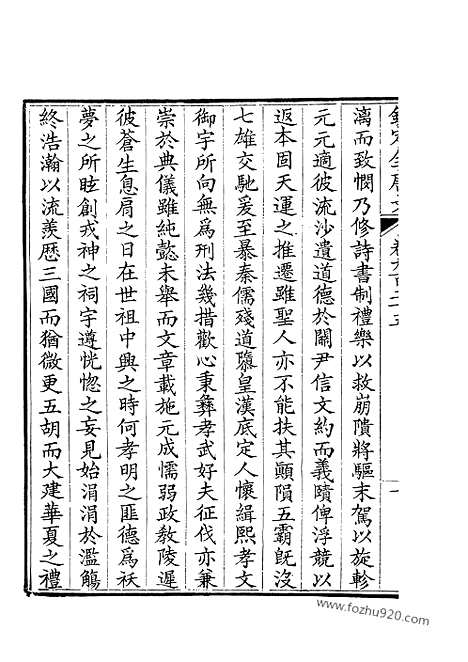 欽定全唐文 卷九百二十五 一
漓而致憫乃修詩書制禮樂以救崩隤將驅末駕以旋軫
元元適彼流沙遺道德於關尹信文約而義賾俾浮競以
返本固天運之推遷雖聖人亦不能扶其顛隕五霸旣沒
七雄交馳爰至暴秦儒殘道隳皇漢底定人懷緝熙孝文
御宇所向無爲刑法幾措歡心秉彝孝武好夫征伐亦兼
崇於典儀雖純懿未舉而文章載施元成懦弱政敎陵遲
彼蒼生息肩之日在世祖中興之時何孝明之匪德爲祅
夢之所眩創戎神之祠宇遵恍惚之妄見始涓涓於濫觴
終浩瀚以流羨歴三國而猶微更五胡而大建華夏之禮
www.fozhu920.com